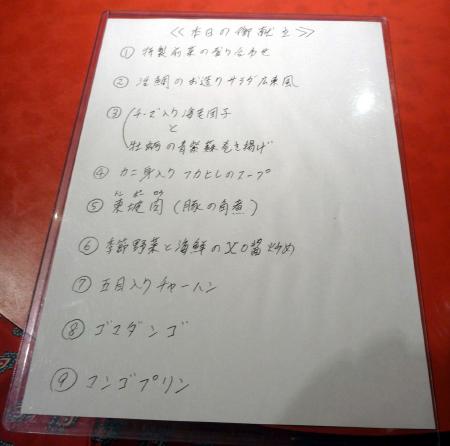 ≪本日の御献立≫
① 特製前菜の盛り合わせ
② 活鯛のお造りサラダ広東風
③ チーズ入り海老団子
と
牡蠣の青紫蘇巻き揚げ
④ カニ身入りフカヒレのスープ
トン ポー ロウ
⑤ 東坡肉 (豚の角煮)
⑥ 季節野菜と海鮮のXO醤炒め
⑦ 五目入りチャーハン
⑧ ゴマダンゴ
⑨ マンゴプリン